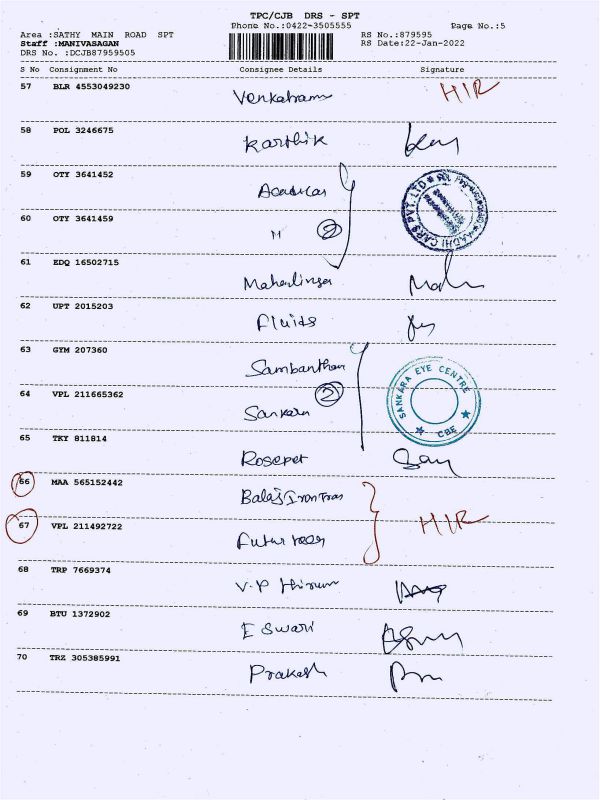 TPC/CJB DRS - SPT
Phone No.:0422-3505555
Page No.:5
Area :SATHY MAIN ROAD SPT
RS No.:879595
Staff :MANIVASAGAN
RS Date:22-Jan-2022
DRS No. :DCJB87959505
S No Consignment No Consignee Details Signature
57 BLR 4553049230 Venkatram HIR
58 POL 3246675 Karthik
59 OTY 3641452
AADHI CARS PVT LTD
60 OTY 3641459 11 2
61 EDQ 16502715 Mahalinga
62 UPT 2015203 Fluids
63 GYM 207360 Sambanthan
SANKARA EYE CENTRE
CBE
64 VPL 211665362 Sankara 2
65 TKY 811814 Rosepet
66 MAA 565152442 Balaji Iron Tras
HIR
67 VPL 211492722
68 TRP 7669374 V.P Thirum
69 BTU 1372902 Eswari
70 TRZ 305385991 Prakash